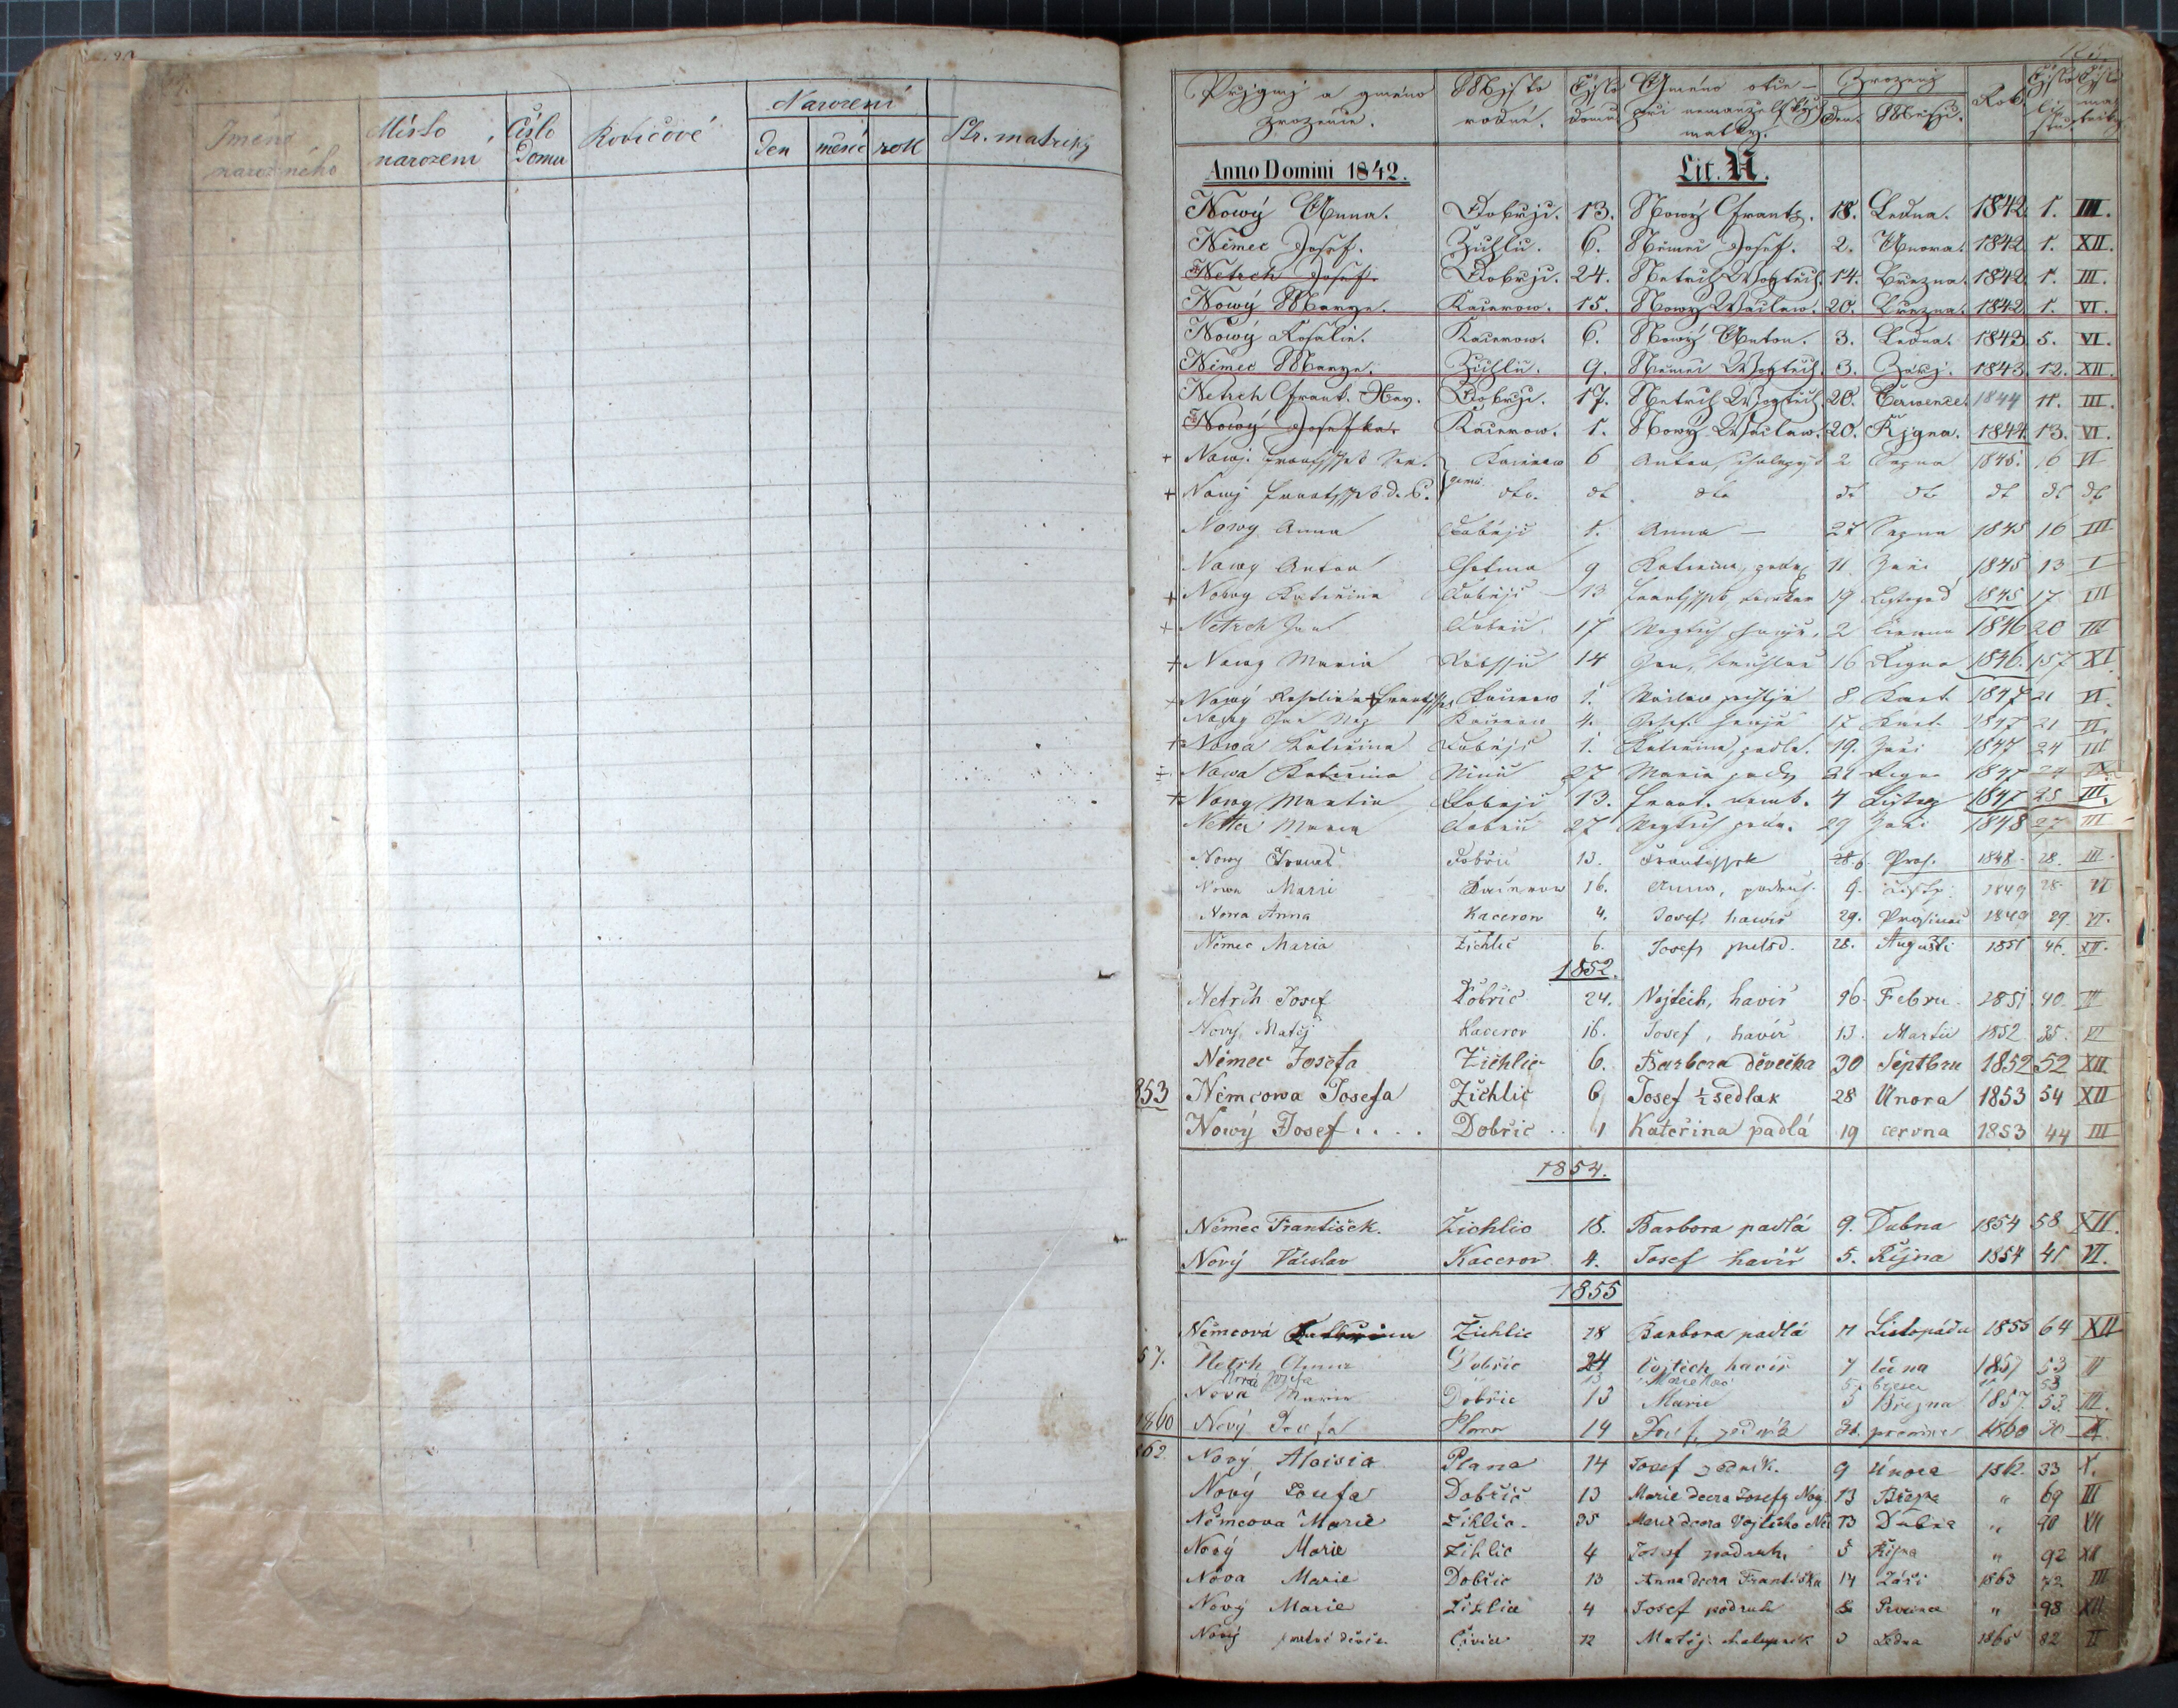 Jméno narozeného | Místo narození | Číslo domu | Rodičové | Narození den | měsíc | rok | Str. matriky
Přígmj a gméno zrozence. | Mjsto rodné. | Čjslo domu | Gméno otce — při nemanželských matky. | Zrozený Den. | Měsýc. | Rok. | Čjslo listu | Čjslo matriky
Anno Domini 1842. Lit. N.
Nowý Anna. | Dobřjč. | 13. | Nowý Frantz. | 18. | Ledna. | 1842. | 1. | III.
Němec Josef. | Žichlic. | 6. | Němec Josef. | 2. | Unora. | 1842. | 1. | XII.
Netrch Josef. | Dobřjč. | 24. | Netrch Wogtěch. | 14. | Března. | 1842. | 1. | III.
Nowý Marye. | Kacerow. | 15. | Nowý Wáclaw. | 20. | Března. | 1842. | 1. | VI.
Nowý Rosalie. | Kacerow. | 6. | Nowý Anton. | 3. | Ledna. | 1843. | 5. | VI.
Němec Marye. | Žichlic. | 9. | Němec Wogtěch. | 3. | Zářj. | 1843. | 12. | XII.
Netrch Frant. Xav. | Dobřjč. | 17. | Netrch Wogtěch. | 20. | Července. | 1844 | 11. | III.
Nowý Josefka. | Kacerow. | 1. | Nowý Wáclaw. | 20. | Řjgna. | 1844. | 13. | VI.
+ Nowý | Kacerow | 6 | Anton, | 2 | Srpna | 1845. | 16 | VI
+ Nowý | dto. | dt | dto | dt | dt | dt | dt | dt
Nowy Anna | Dobřjč | 1. | Anna — | 27 | Srpna | 1845 | 16 | III
Nowy Anton | Chotina | 9 | Kateřina, | 11. | Září | 1845 | 13 | I
+ Nowy Kateřina | Dobřjč | 13 | | 19 | Listopad | 1845 | 17 | III
+ Netrch Jan | Dobřič | 17 | Wogtěch | 2 | | 1846 | 20 | III
+ Nowy Maria | | 14 | Jan, | 16 | Řigna | 1846. | 157 | XI.
+ Nowý Rosalia a | Kacerow | 1. | Wáclaw | 8 | Květ. | 1847 | 21 | VI.
Nowy Jan | Kacerow | 4. | Josef | 17 | Květ. | 1847 | 21 | VI.
+ Nowa Kateřina | Dobřjč | 1. | Kateřina, padlá. | 19. | Září | 1847 | 24 | III
Nowa Kateřina | | 27 | Maria | | | 1847 | |
+ Nowy Martin | Dobřjč | 13. | Frant. | 4 | Listop | 1847 | 25 | III.
Maria | Dobřič | 27 | Wogtěch | 29 | Září | 1848 | 27 | III
Nowy | Dobřic | 13. | Frantissek | 6 | Pros. | 1848 | 28. | III.
Nowa Marie | Kacerow | 16. | Anna, podruh. | 9. | Listp. | 1849 | 28. | VI
Nowa Anna | Kacerow | 4. | Josef, hawiř | 29. | Prosinec | 1849 | 29. | VI.
Němec Maria | Žichlic | 6. | Josef, | 28. | Augusti | 1851 | 46. | XII.
1852.
Netrch Josef | Dobřic | 24. | Vojtěch, havíř | 26. | Febru. | 1851 | 40. | III
Nový, Matěj | Kacerov | 16. | Josef, havíř | 13. | Martii | 1852 | 35. | VI
Němec Josefa | Žichlic | 6. | Barbora děvečka | 30 | Septbru | 1852 | 52 | XII
853 | Němcowa Josefa | Žichlic | 6 | Josef ½ sedlak | 28 | Února | 1853 | 54 | XII
Nowý Josef.... | Dobřic .. | 1 | Kateřina padlá | 19 | června | 1853 | 44 | III
1854.
Němec František. | Žichlic | 18. | Barbora padlá | 9. | Dubna | 1854 | 58 | XII.
Nový Václav | Kacerov | 4. | Josef havíř | 5. | Října | 1854 | 41 | VI.
1855
Němcová | Žichlic | 18 | Barbora padlá | 11 | Listopadu | 1855 | 64 | XII
57. | Netrh Anna | Dobřic | 24 | Vojtěch havíř | 7 | | 1857 | 53 |
Nová Josefa | 13 | Marie | 5 | | | 53
Nová Maria | Dobřic | 13 | Marie | 5 | Března | 1857 | 53. | III.
1860 | Nový Josefa | Plana | 14 | Josef, zedník | 31. | prosince | 1860 | 30 | X
862. | Nový Aloisia | Plana | 14 | Josef zedník. | 9 | února | 1862. | 33 | X.
Nový Josefa | Dobřič | 13 | Marie dcera Josefa Nový. | 13 | Břez. | " | 69 | III
Němcova Marie | Žihlic. | 35 | Marie dcera Vojtěcha Ně | 13 | Dubna | " | 90 | XII
Nový Marie | Žihlic | 4 | Josef podruh. | 5 | Října | " | 92 | XII
Nova Marie | Dobřic | 13 | Anna dcera Františka | 14 | Září | 1863 | 72 | III
Nový Marie | Žihlic | 4 | Josef podruh | 8 | Prosince | " | 98 | XII
Nový mrtvé děvče. | Čivic | 12 | Matěj chalupník | 3 | Ledna | 1865 | 82 | II